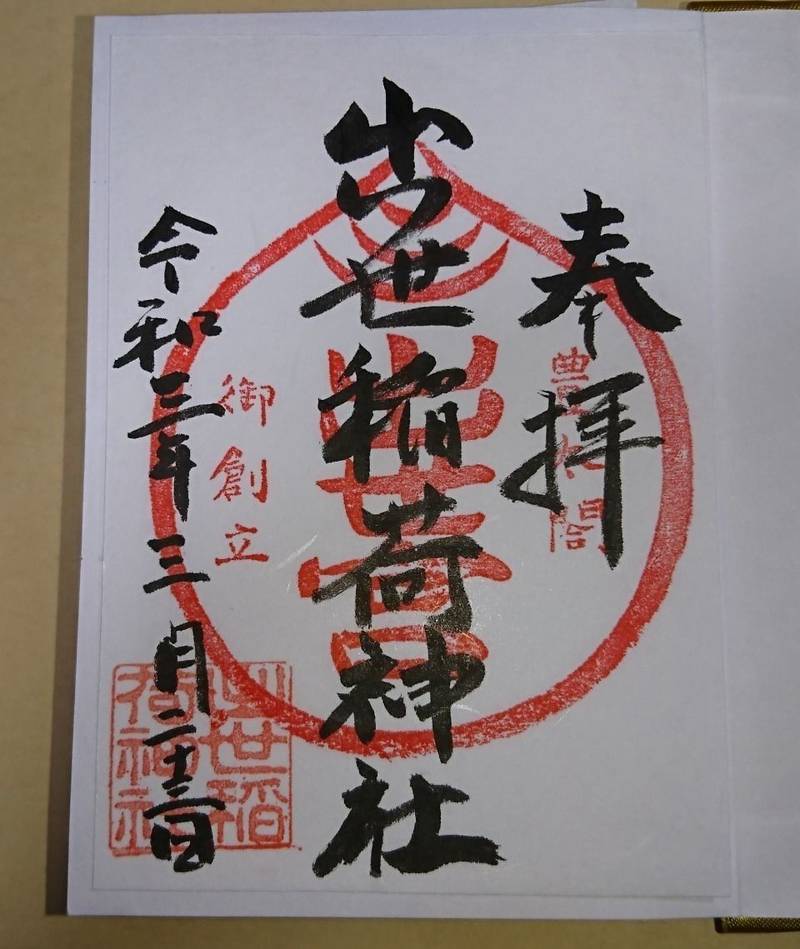 奉拝
豊太閤
出世稲荷神社
出世
御創立
令和三年三月二十三日
出世稲
荷神社